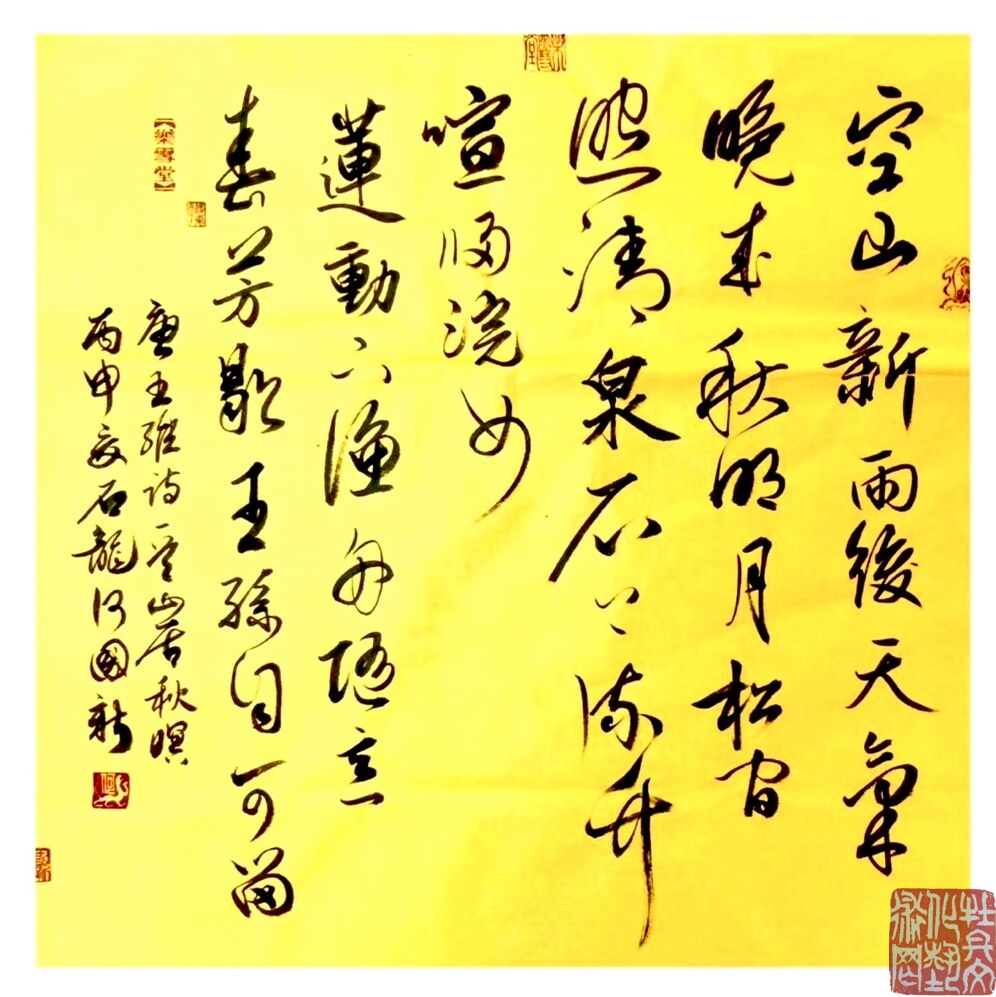 空山新雨後天氣
晚来秋明月松间
照清泉石上流竹
喧歸浣女
蓮動下漁舟随意
春芳歇王孫自可留
【樂雪堂】
唐王維诗一首山居秋暝
丙申夏石龍何國新